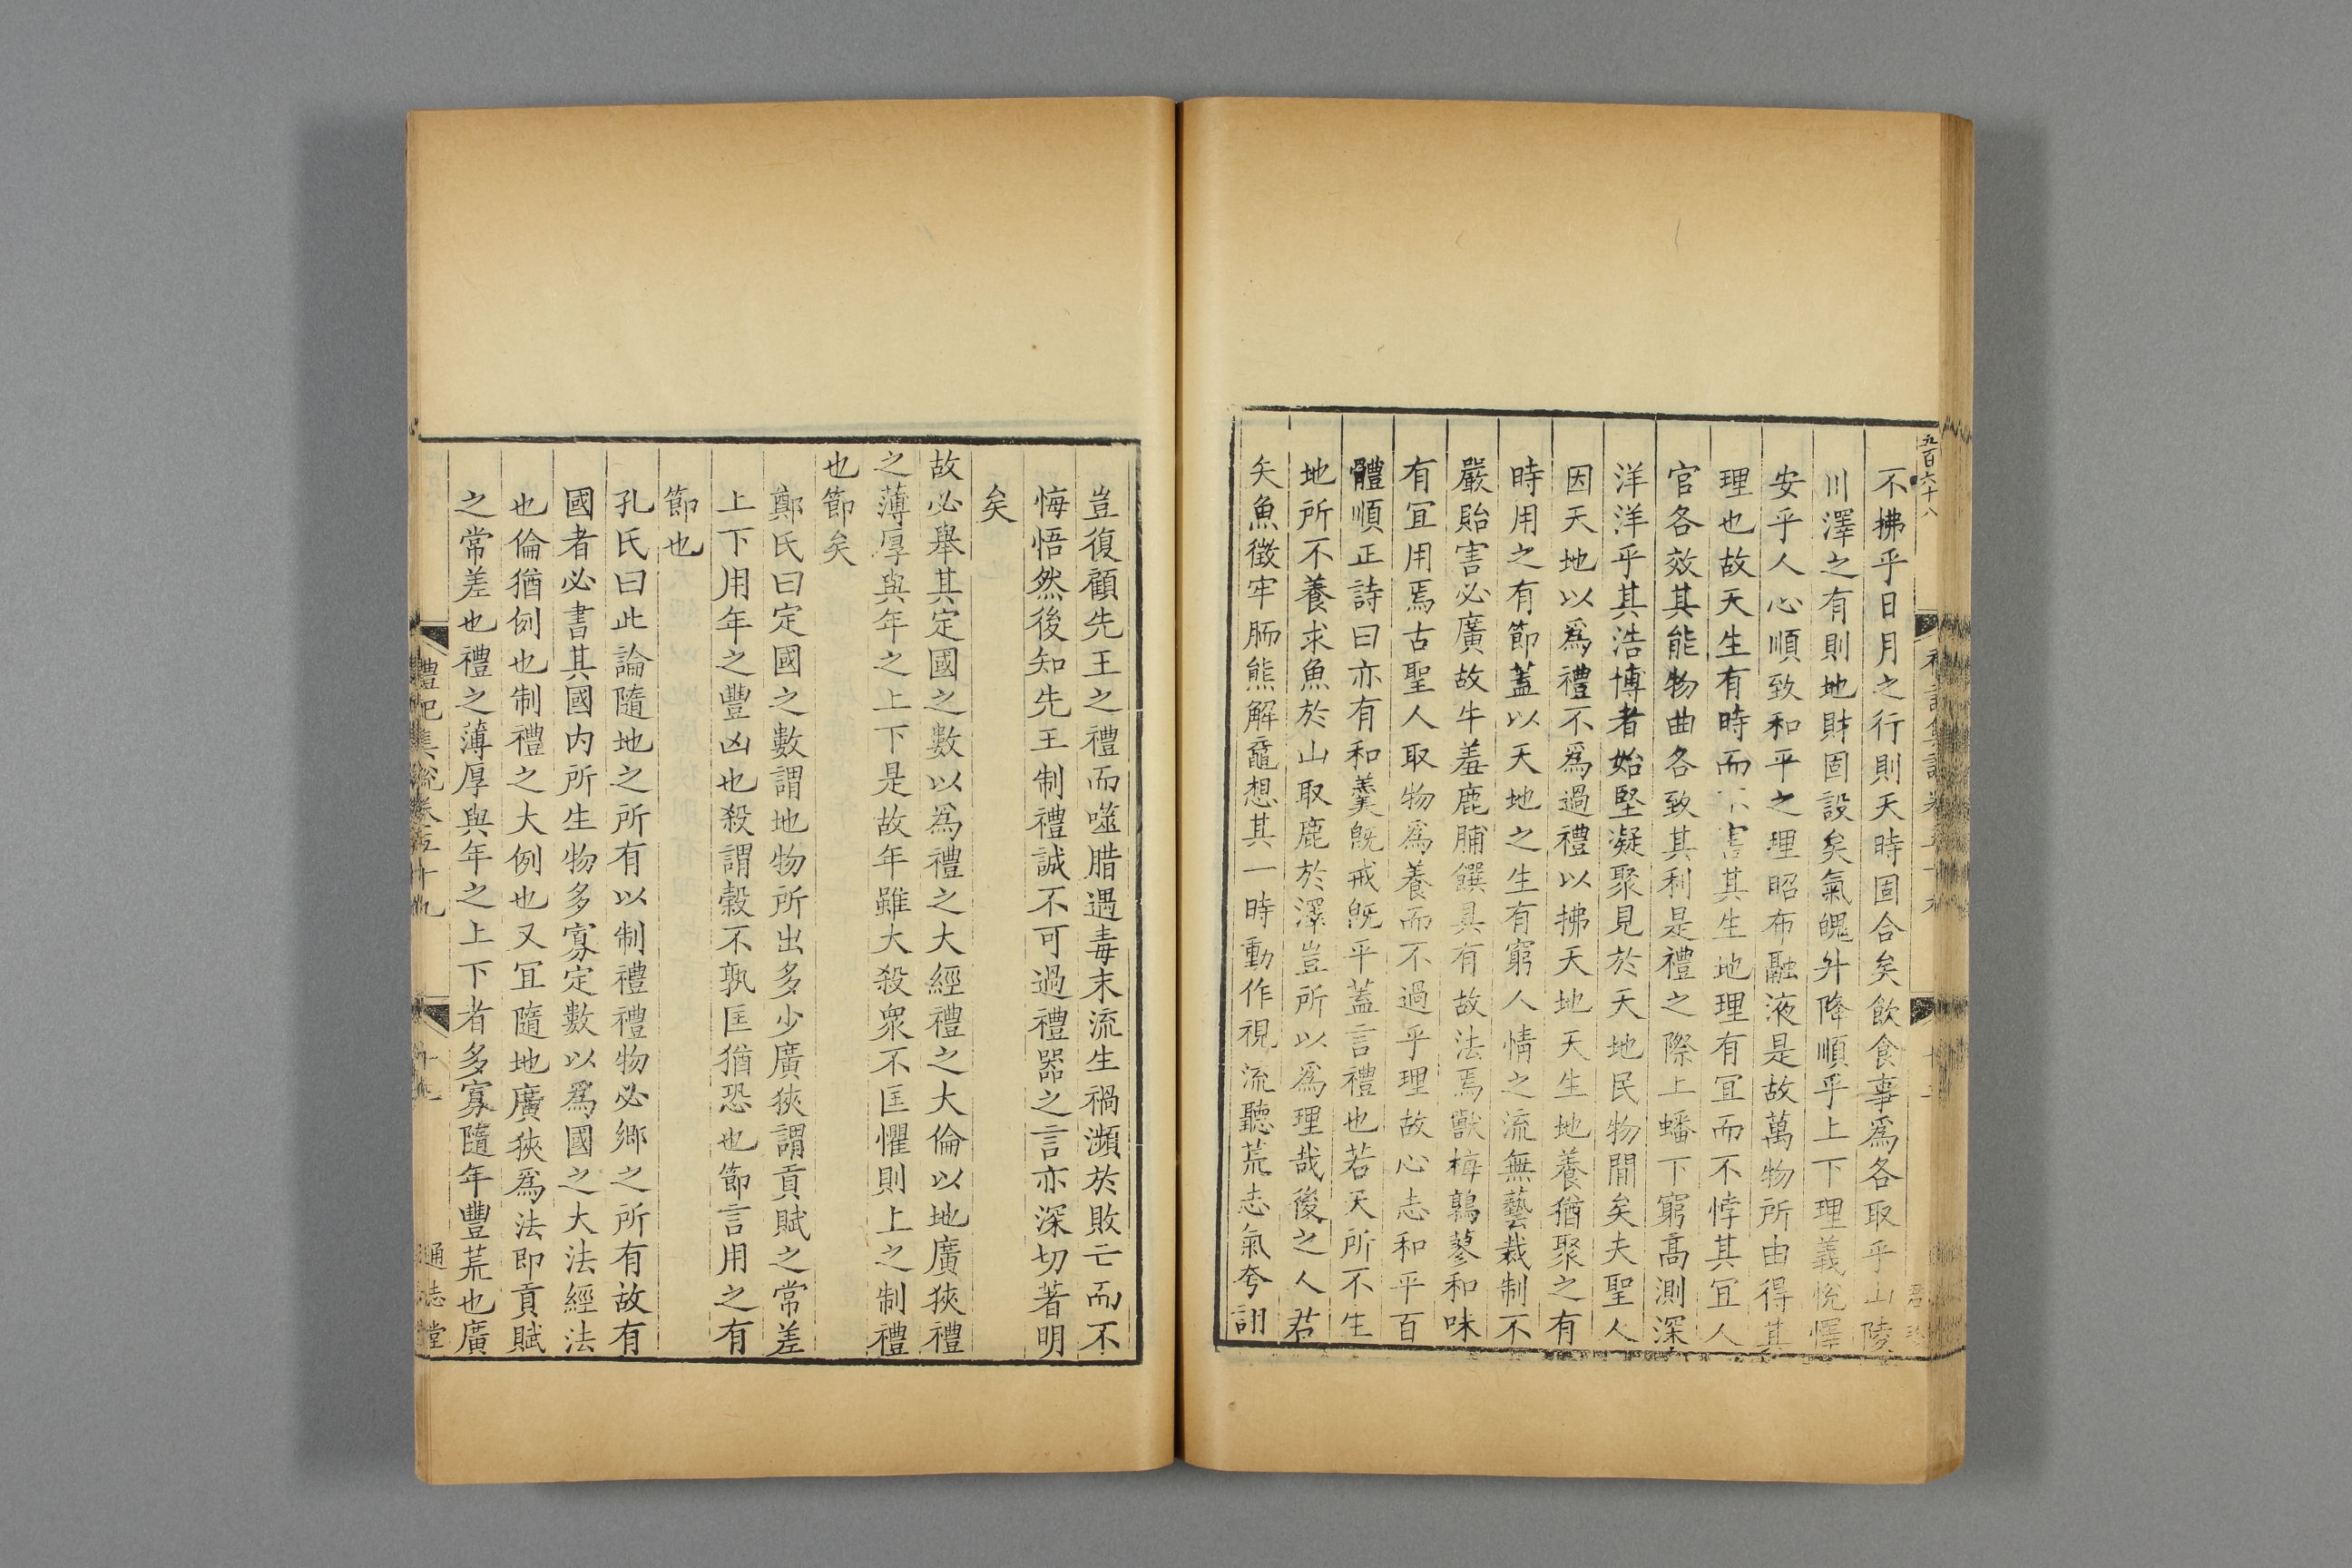 五百六十八
不拂乎日月之行則天時固合矣飲食事爲各取乎山陵
川澤之有則地財固設矣氣魄升降順乎上下理義悅懌
安乎人心順致和平之理昭布融液是故萬物所由得其
理也故天生有時而不害其生地理有宜而不悖其宜人
官各效其能物曲各致其利是禮之際上蟠下窮高測深
洋洋乎其浩博者始堅凝聚見於天地民物閒矣夫聖人
因天地以爲禮不爲過禮以拂天地天生地養猶聚之有
時用之有節蓋以天地之生有窮人情之流無藝裁制不
嚴貽害必廣故牛羞鹿脯饌具有故法焉獸梅鶉蓼和味
有宜用焉古聖人取物爲養而不過乎理故心志和平百
體順正詩曰亦有和羹旣戒旣平蓋言禮也若天所不生
地所不養求魚於山取鹿於澤豈所以爲理哉後之人君
矢魚徵牢胹熊解黿想其一時動作視流聽荒志氣夸詡
豈復顧先王之禮而噬腊遇毒末流生禍瀕於敗亡而不
悔悟然後知先王制禮誠不可過禮器之言亦深切著明
矣
故必舉其定國之數以爲禮之大經禮之大倫以地廣狹禮
之薄厚與年之上下是故年雖大殺衆不匡懼則上之制禮
也節矣
鄭氏曰定國之數謂地物所出多少廣狹謂貢賦之常差
上下用年之豐凶也殺謂榖不孰匡猶恐也節言用之有
節也
孔氏曰此論隨地之所有以制禮禮物必鄉之所有故有
國者必書其國内所生物多寡定數以爲國之大法經法
也倫猶例也制禮之大例也又宜隨地廣狹爲法即貢賦
之常差也禮之薄厚與年之上下者多寡隨年豐荒也廣
禮記集說卷五十九
通志堂